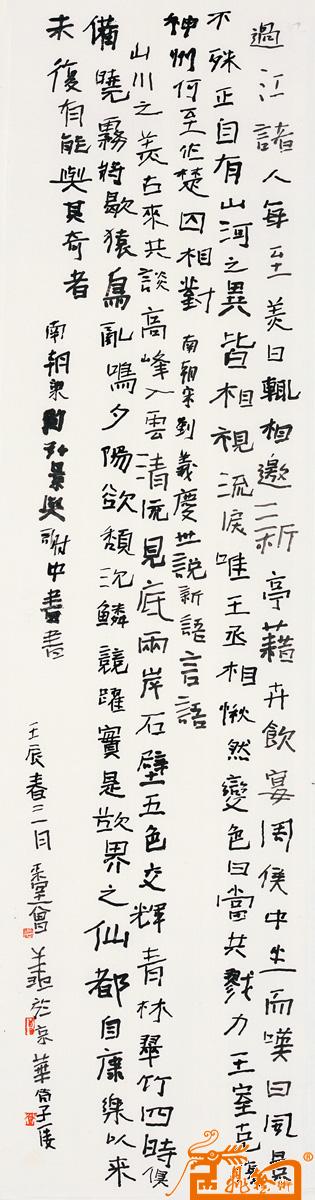 過江諸人每至美日輒相邀新亭藉卉飲宴周侯中坐而嘆曰風景
不殊正自有山河之異皆相視流淚唯王丞相愀然變色曰當共戮力王室克復
神州何至作楚囚相對 南朝宋劉義慶世說新語言語
山川之美古來共談高峰入雲清流見底兩岸石壁五色交輝青林翠竹四時俱
備曉霧將歇猿鳥亂鳴夕陽欲頹沉鱗競躍實是欲界之仙都自康樂以來
未復有能與其奇者 南朝梁陶弘景與謝中書書
壬辰春三月 於京華